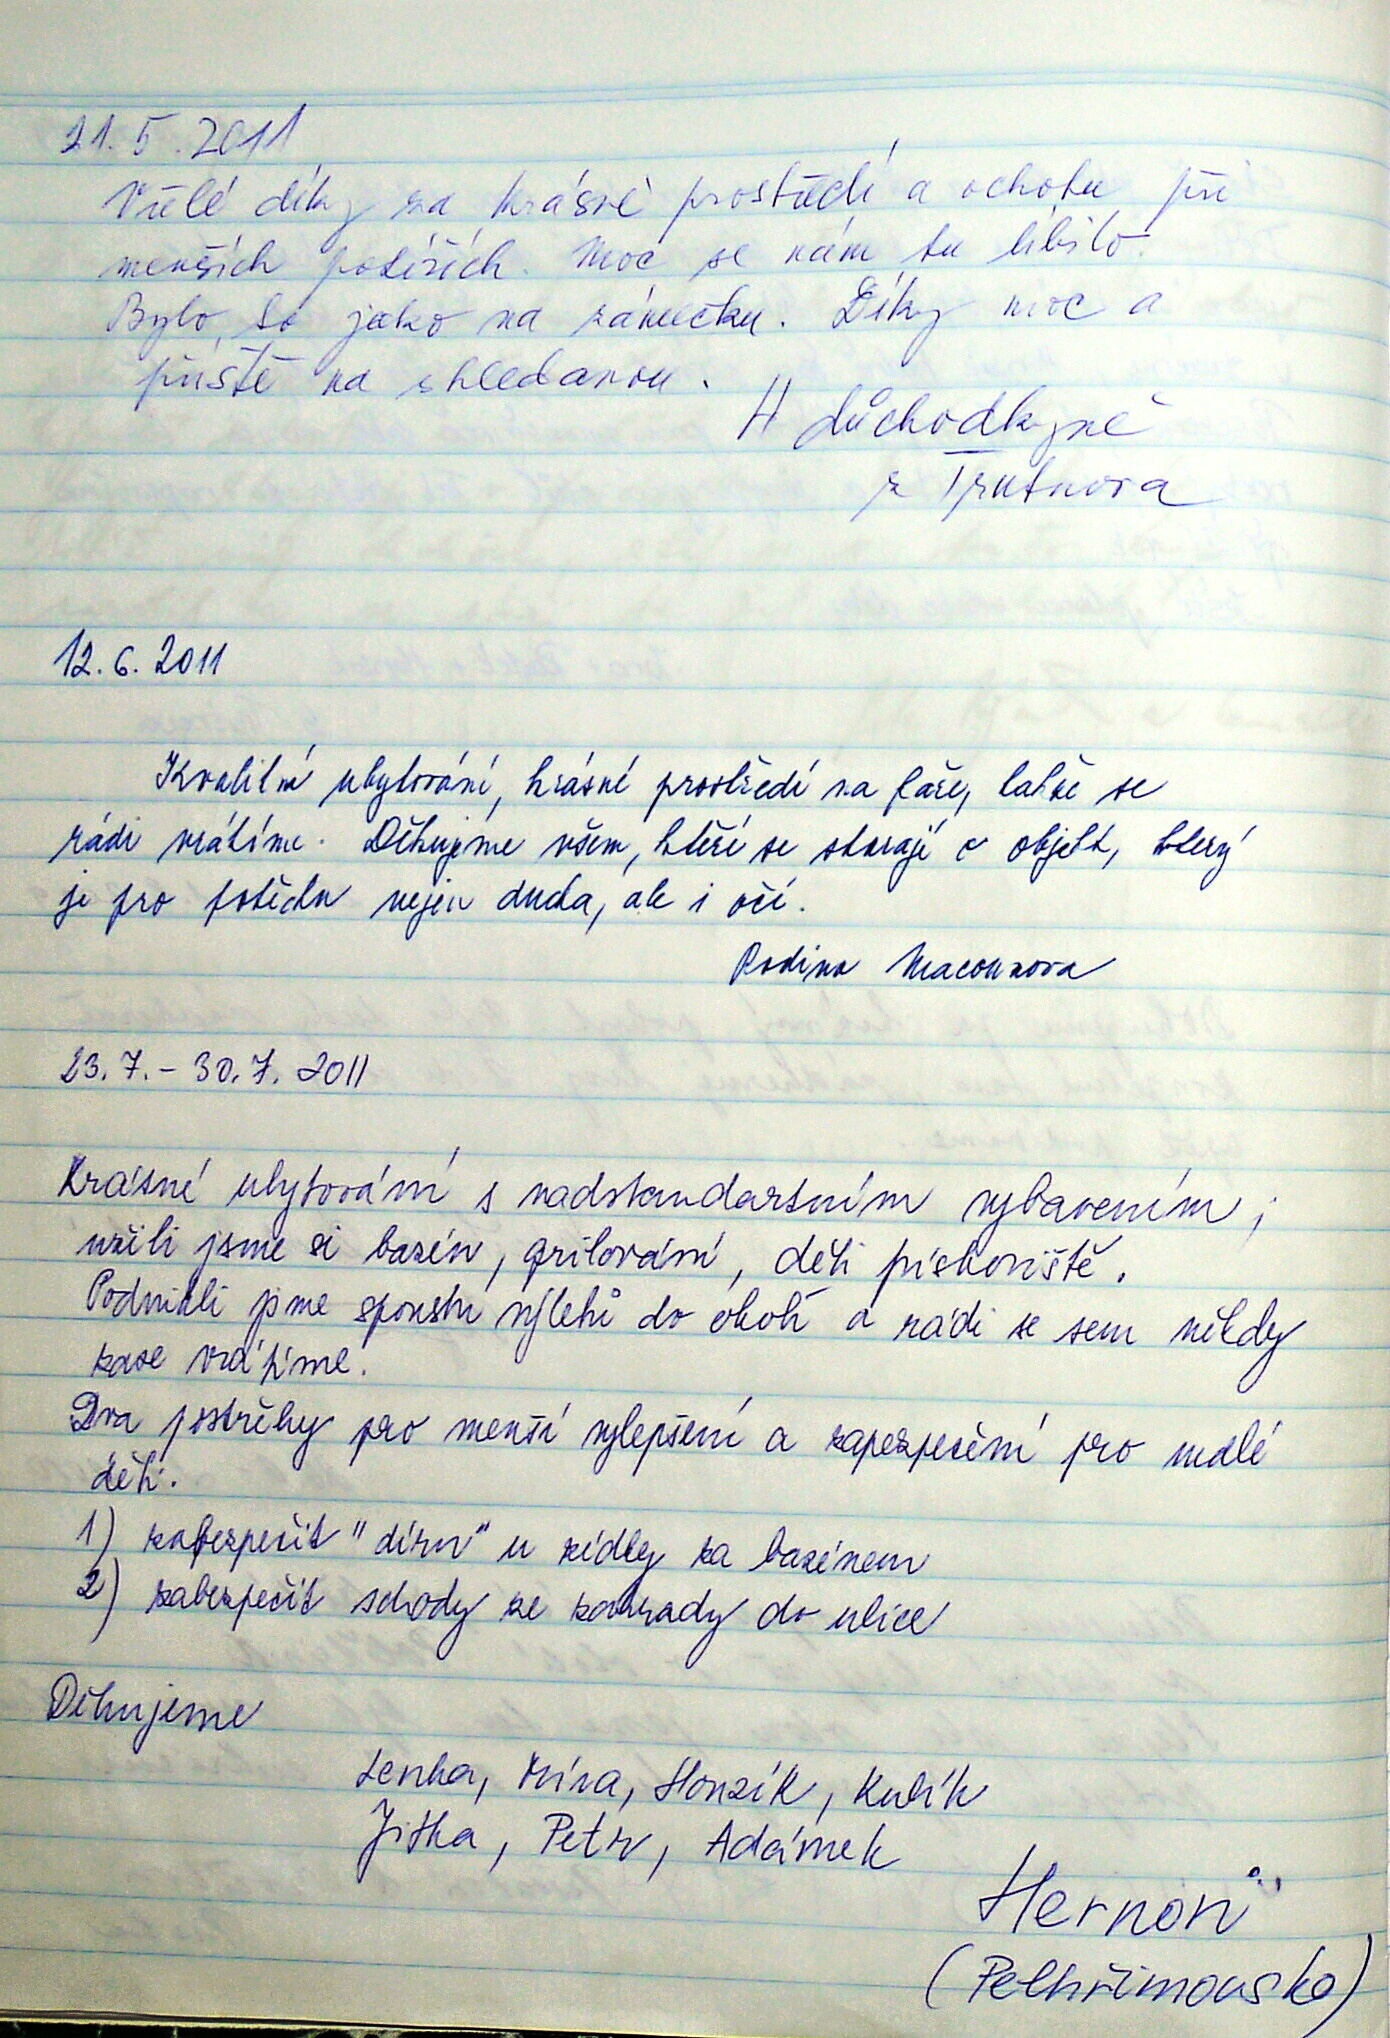 21.5.2011
Vřelé díky za krásné prostředí a ochotu při
menších potížích. Moc se nám tu líbilo.
Bylo to jako na zámečku. Díky moc a
příště na shledanou.
H důchodkyně
z Trutnova
12.6.2011
Kvalitní ubytování, krásné prostředí na faře, takže se
rádi vrátíme. Děkujeme všem, kteří se starají o objekt, který
je pro potěchu nejen ducha, ale i očí.
Rodina Macounova
23.7.-30.7.2011
Krásné ubytování s nadstandartním vybavením,
užili jsme si bazén, grilování, děti pískoviště.
Podnikli jsme spoustu výletů do okolí a rádi se sem někdy
zase vrátíme.
Dva postřehy pro menší vylepšení a zapezpečení pro malé
děti.
1) zabezpečit "díru" u zídky za bazénem
2) zabezpečit schody ze zahrady do ulice
Děkujeme
Lenka, Míra, Honzík, Kubík
Jitka, Petr, Adámek
(Pelhřimovsko)